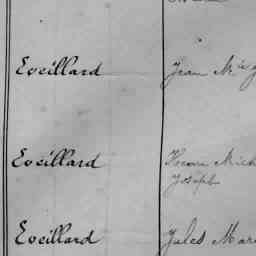 Eveillard Jean M
Eveillard
Joseph
Eveillard Jules Mar